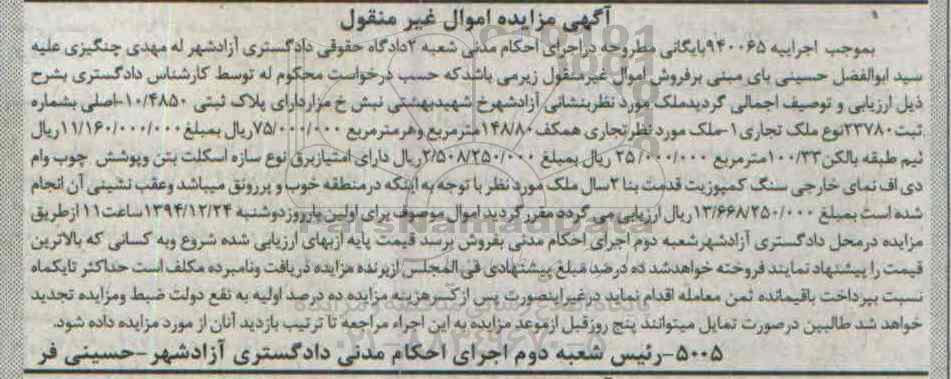 آگهی مزایده اموال غیر منقول
بموجب اجراییه ۹۴۰۰۶۵بایگانی مطروحه دراجرای احکام مدنی شعبه ۲دادگاه حقوقی دادگستری آزادشهر له مهدی چنگیزی علیه
سید ابوالفضل حسینی بای مبنی برفروش اموال غیرمنقول زیرمی باشدکه حسب درخواست محکوم له توسط کارشناس دادگستری بشرح
ذیل ارزیابی و توصیف اجمالی گردیدملک مورد نظربنشانی آزادشهرخ شهیدبهشتی نبش خ مزاردارای پلاک ثبتی ۱۰/۴۸۵۰-اصلی بشماره
ثبت۲۳۷۸۰نوع ملک تجاری۱-ملک مورد نظرتجاری همکف۱۴۸/۸۰مترمربع وهرمترمربع ۷۵/۰۰۰/۰۰۰ریال بمبلغ۱۱/۱۶۰/۰۰۰/۰۰۰ریال
نیم طبقه بالکن۱۰۰/۳۳مترمربع ۲۵/۰۰۰/۰۰۰ ریال بمبلغ ۲/۵۰۸/۲۵۰/۰۰۰ریال دارای امتیازبرق نوع سازه اسکلت بتن وپوشش چوب وام
دی اف نمای خارجی سنگ کمپوزیت قدمت بنا ۲سال ملک مورد نظر با توجه به اینکه درمنطقه خوب و پررونق میباشد وعقب نشینی آن انجام
شده است بمبلغ ۱۳/۶۶۸/۲۵۰/۰۰۰ریال ارزیابی می گردد مقررگردید اموال موصوف برای اولین بارروزدوشنبه ۱۳۹۴/۱۲/۲۴ساعت۱۱ ازطریق
مزایده درمحل دادگستری آزادشهرشعبه دوم اجرای احکام مدنی بفروش برسد قیمت پایه ازبهای ارزیابی شده شروع وبه کسانی که بالاترین
قیمت را پیشنهاد نمایند فروخته خواهدشد ده درصد مبلغ پیشنهادی فی المجلس ازبرنده مزایده دریافت ونامبرده مکلف است حداکثر تایکماه
نسبت بپرداخت باقیمانده ثمن معامله اقدام نماید درغیراینصورت پس ازکسرهزینه مزایده ده درصد اولیه به نفع دولت ضبط ومزایده تجدید
خواهد شد طالبین درصورت تمایل میتوانند پنج روزقبل ازموعد مزایده به این اجراء مراجعه تا ترتیب بازدید آنان از مورد مزایده داده شود.
۵۰۰۵-رئیس شعبه دوم اجرای احکام مدنی دادگستری آزادشهر-حسینی فر
ParsNamadData